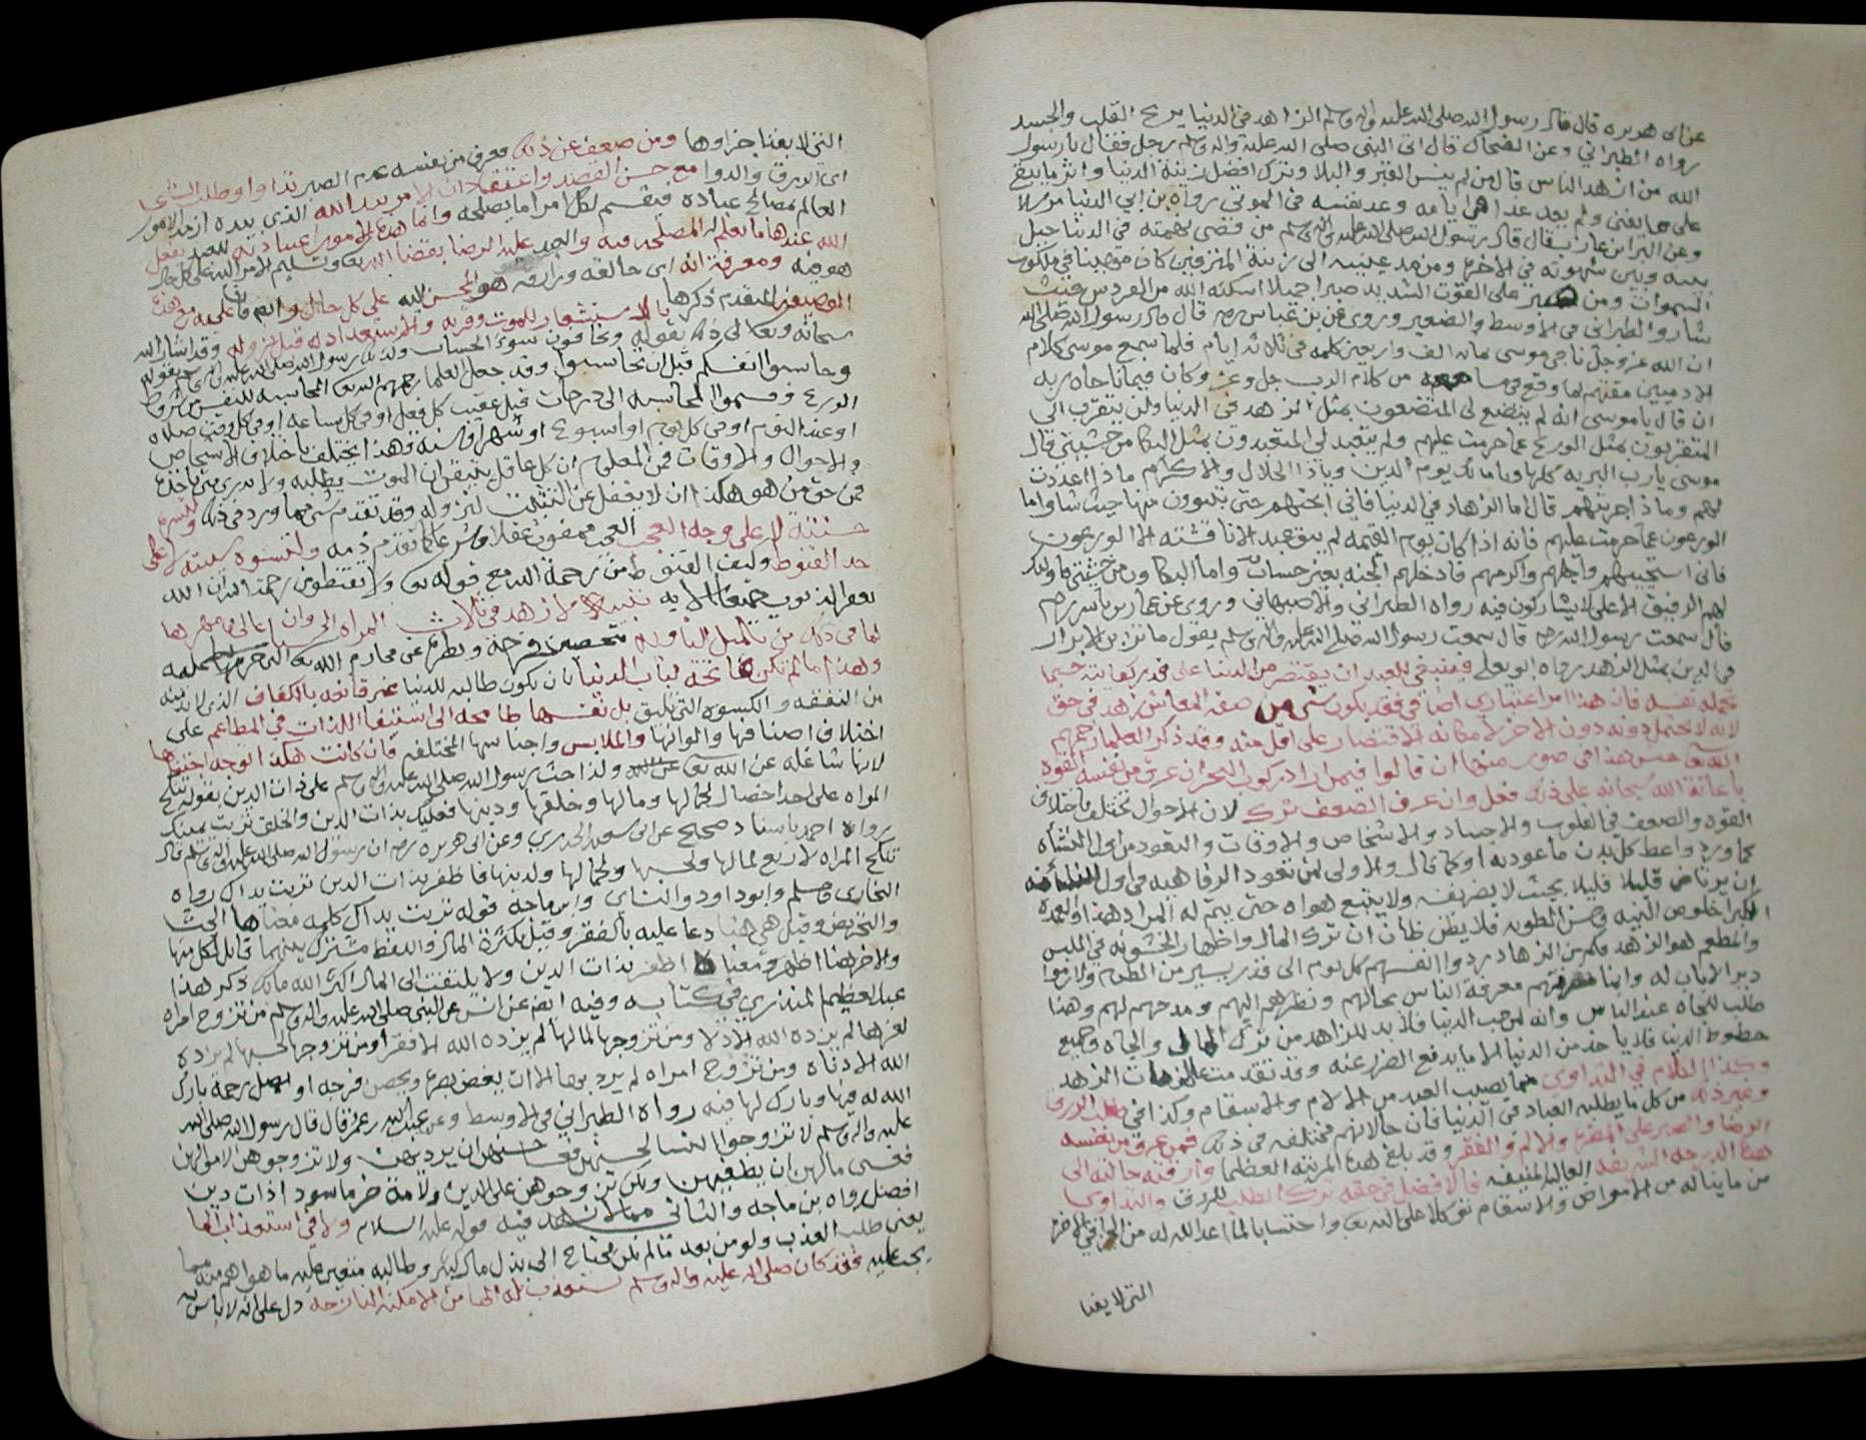 عن ابى هريره قال قال رسول الله صلى الله عليه واله وسلم الزاهد فى الدنيا يريح القلب والجسد
رواه الطبراني وعن الضحاك قال اتى النبى صلى الله عليه واله وسلم رجل فقال يا رسول
الله من ازهد الناس قال من لم ينس القبر والبلا وترك افضل زينة الدنيا واثر ما يبقى
على ما يفنى ولم يعد غدا من ايامه وعد نفسه فى الموتى رواه بن ابي الدنيا مرسلا
وعن البرا بن عازب قال قال رسول الله صلى الله عليه واله وسلم من قضى نهمته فى الدنيا حيل
بينه وبين شهوته فى الاخره ومن مد عينيه الى زينة المترفين كان مهينا في ملكوت
السموات ومن صبر على القوت الشديد صبرا جميلا اسكنه الله من الفردوس حيث
شا رواه الطبرانى فى الاوسط والصغير وروى عن بن عباس رضه قال قال رسول الله صلى الله
ان الله عز وجل ناجى موسى بماية الف واربعين كلمه فى ثلاثة ايام فلما سمع موسى كلام
الادميين مقتهم لما وقع فى مسامعه من كلام الرب جل وعز وكان فيما ناجاه ربه
ان قال يا موسى انه لم يتصنع لى المتصنعون بمثل الزهد فى الدنيا ولن يتقرب الي
المتقربون بمثل الورع عما حرمت عليهم ولم يتعبد لي المتعبدون بمثل البكا من خشيتى قال
موسى يا رب البريه كلها ويا مالك يوم الدين ويا ذا الجلال والاكرام ماذا اعددت
لهم وماذا جزيتهم قال اما الزهاد في الدنيا فاني ابحتهم جنتى يتبوون منها حيث شاوا واما
الورعون عما حرمت عليهم فانه اذا كان يوم القيمه لم يبق عبد الا ناقشته الا الورعون
فانى استحييهم واجلهم واكرمهم فادخلهم الجنه بغير حساب واما البكاون من خشيتى فاوليك
لهم الرفيق الاعلى لا يشاركون فيه رواه الطبرانى والاصبهاني وروي عن عمار بن ياسر رضه
قال سمعت رسول الله صلى الله عليه واله وسلم يقول ما تزين الابرار
فى الدين بمثل الزهد رواه ابو يعلى فينبغى للعبد ان يقتصر من الدنيا على قدر كفايته حسبما
تحمله نفسه فان هذا امر اعتباري اضافى فقد يكون شى من صفة المعاش زهد فى حق
لانه لا يحتمل دونه دون الاخر لامكانه الاقتصار على اقل منه وقد ذكر العلما رحمهم
الله جنس هذا فى صور منها ان قالوا فيمن اراد ركوب البحر ان عرف من نفسه القوه
باعانة الله سبحانه على ذلك فعل وان عرف الضعف ترك لان الاحوال تختلف باختلاف
القوه والضعف فى القلوب والاجساد والاشخاص والاوقات والتعود من اول النشاه
كما ورد واعط كل بدن ما عود به او كما قال والاولى لمن تعود الرفاهيه فى اول
ان يرتاض قليلا قليلا بحيث لا يضر نفسه ولا يتبع هواه حتى يتم له المراد هذا والعمده
الكبرا خلوص النيه وحسن الطويه فلا يظن ظان ان ترك المال واظهار الخشونه فى الملبس
والمطعم هو الزهد فكم من الزهاد ردوا انفسهم كل يوم الى قدر يسير من الطعام ولازموا
ديرا لا باب له وانما معرفة الناس بحالهم ونظرهم اليهم ومدحهم لهم وهذا
طلب للجاه عند الناس وانه لمن حب الدنيا فلا بد للزاهد من ترك المال والجاه وجميع
حظوظ الدنيا فلا ياخذ من الدنيا الا ما يدفع الضر عنه وقد تقدمت الزهد
وكذا الكلام في التداوي مما يصيب العبد من الالام والاسقام وكذا فى طلب الرزق
وغير ذلك من كل ما يطلبه العباد فى الدنيا فان حالاتهم مختلفه فى ذلك فمن عرف من نفسه
الرضا والصبر على الضر والالم والفقر وقد بلغ هذه المرتبه العظما وارقته حالته الى
هذه الدرجه الشريفه العاليه المنيفه فالافضل فى حقه ترك الطلب للرزق والتداوى
من ما يناله من الامراض والاسقام توكلا على الله واحتسابا لما اعد الله له من الجزا فى الاخره
التى لا يفنا
التى لا يفنا جزاوها ومن ضعف عن ذلك وعرف من نفسه عدم الصبر تداوا وطلب
اى الرزق والدوا مع حسن القصد واعتقاد ان الامر بيد الله الذى بيده ازمة الامور
العالم بمصالح عباده فيقسم لكل امر اما يصلحه وانما هذه الامور
الله عندها ما يعلم المصلحه فيه والعبد عليه الرضا بقضا الله وتسليم الامر اليه على كل حال
هو منه ومعرفة انه اى خالقه ورازقه هو المحسن اليه على كل حال
المتقدم ذكرها بالاستشعار للموت وقربه والاستعداد له قبل نزوله وقد اشار الله
سبحانه وتعالى الى ذلك بقوله ويخافون سوء الحساب ولذلك رسول الله صلى الله عليه واله وسلم بقوله
وحاسبوا انفسكم قبل ان تحاسبوا وقد جعل العلما رحمهم الله المحاسبه للنفس من شروط
الورع وقسموا المحاسبه الى درجات قيل عقيب كل فعل او فى كل ساعه او فى كل وقت صلاه
او عند النوم او فى كل يوم او اسبوع او شهر او سنه وهذا يختلف باختلاف الاشخاص
والاحوال والاوقات فمن المعلوم ان كل عاقل يتيقن ان الموت يطلبه ولا يدرى متى ياخذه
فمن حق من هو هكذا ان لا يغفل عن التثبت لنزوله وقد تقدم شى مما ورد فى ذلك
حسنته لا على وجه العجب العجب ممقوت عقلا وشرعا كما تقدم ذمه ولتسوه سيته لا على
حد القنوط وليف القنوط من رحمة الله مع قوله ولا تقنطوا من رحمة الله ان الله
يغفر الذنوب جميعا الايه تنبيه لا زهد فى ثلاث المراه الى
لما فى ذلك من تحصين فرجه وطرفه عن محارم الله التى حرمها عليه
وهذا ما لم تكن فاتحه لباب الدنيا بان تكون طالبه للدنيا غير قانعه بالكفاف الذى لا بد منه
من النفقه والكسوه التى تليق بل نفسها طامحه الى استيفا اللذات في المطاعم على
اختلاف اصنافها والوانها والملابس واجناسها المختلفه فان كانت هكذا توجه اجتنابها
لانها شاغله عن الله ولذا حث رسول الله صلى الله عليه واله وسلم على ذات الدين بقوله تنكح
المراه على احد خصال لجمالها ومالها وخلقها ودينها فعليك بذات الدين والخلق تربت يمينك
رواه احمد باسناد صحيح عن ابى سعيد الخدري وعن ابى هريره رضه ان رسول الله صلى الله عليه واله وسلم قال
تنكح المراه لاربع لمالها ولحسبها ولجمالها ولدينها فاظفر بذات الدين تربت يداك رواه
البخارى ومسلم وابو داود والنساى وابن ماجه قوله تربت يداك كلمه معناها الحث
والتحريض وقيل هى هنا دعا عليه بالفقر وقيل بكثرة المال واللفظ مشترك بينهما قابل لكل منها
والاخر هنا اظهر ومعناه اظفر بذات الدين ولا يلتفت الى المال اكثر الله مالك ذكر هذا
عبد العظيم المنذرى فى كتابه وفيه ايضا عن انس عن النبى صلى الله عليه واله وسلم من تزوج امراه
لعزها لم يزده الله الا ذلا ومن تزوجها لمالها لم يزده الله الا فقرا ومن تزوجها لحسبها لم يزده
الله الا دناة ومن تزوج امراه لم يرد بها الا ان يغض بصره ويحصن فرجه او يصل رحمه بارك
الله له فيها وبارك لها فيه رواه الطبرانى فى الاوسط وعن عبد الله بن عمر قال قال رسول الله صلى الله
عليه واله وسلم لا تزوجوا النسا لحسنهن فعسى حسنهن ان يرديهن ولا تزوجوهن لاموالهن
فعسى مالهن ان يطغيهن ولكن تزوجوهن على الدين ولامة خرما سودا ذات دين
افضل رواه بن ماجه والثانى مما لا زهد فيه قوله عليه السلام ولا فى استعذاب الما
يعنى طلب العذب ولو من بعد ما لم يكن محتاج الى بذل مال كثير وطالبه متعين عليه ما هو اهم منه مما
يجب عليه فقد كان صلى الله عليه واله وسلم يستعذب له الما من الامكنه النازحه دل على انه لا باس به